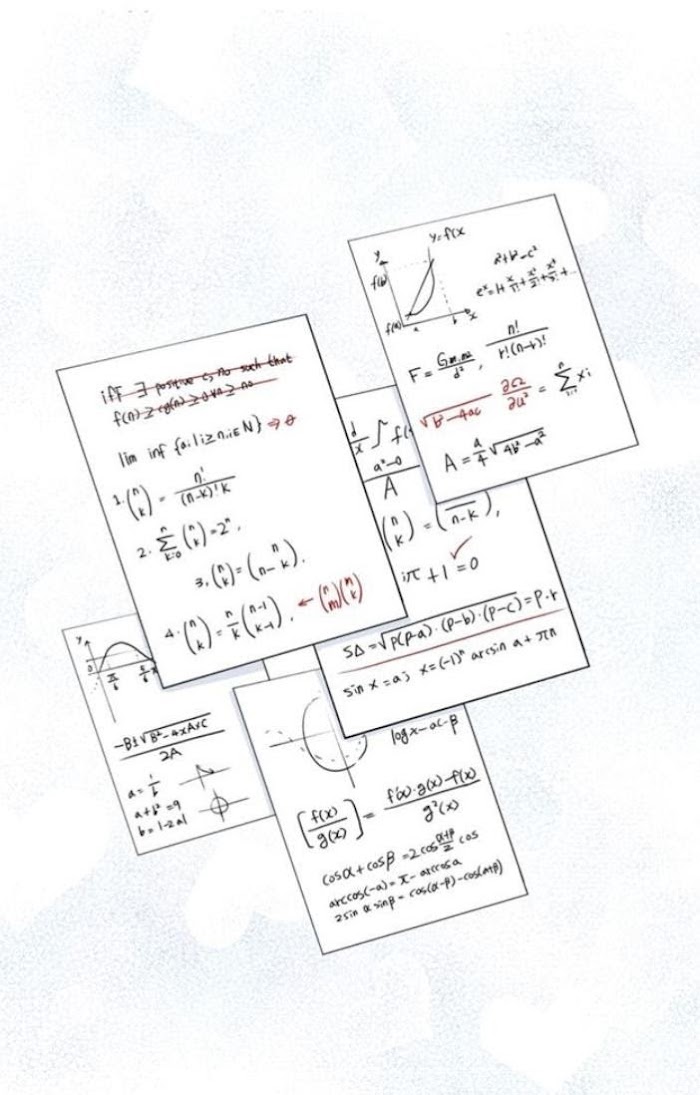 y=f(x
y
f(b)
f(a)
a
b
x
a²+b²=c²
eˣ=1+x/1!+x²/2!+x³/3!+...
F=Gm₁m₂/d², n!/r!(n-r)!
√b²-4ac ∂Ω/∂u² = Σxi
A=a/4√4b²-a²
iff ∃ positive c, n₀ such that
f(n) ≥ cg(n) ≥ 0 ∀n ≥ n₀
lim inf {ai|i≥n,i∈N} ⇒ 0
1. (n k) = n!/(n-k)!k
2. Σ k=0 n (n k) = 2ⁿ.
3. (n k) = (n- k).
4. (n k) = n/k (n-1 k-1). ← (n m)(n k)
d/x ∫ f(
a²-0
A
(n k) = (n-k),
iπ+1=0
S∆=√P(P-a)·(P-b)·(P-c)=P·r
sin x=a; x=(-1)ⁿ arcsin a+πn
y
0
π/6
5/6
-B±√B²-4×A×C/2A
a=1/b
a+b²=9
b=1-2a1
log x-αc-β
[f(x)/g(x)] = f'(x)·g(x)-f(x)/g²(x)
cosα+cosβ=2cos α+β/2 cos
arccos(-a)=π-arccosa
2sin α sinβ=cos(α-β)-cos(α+β)